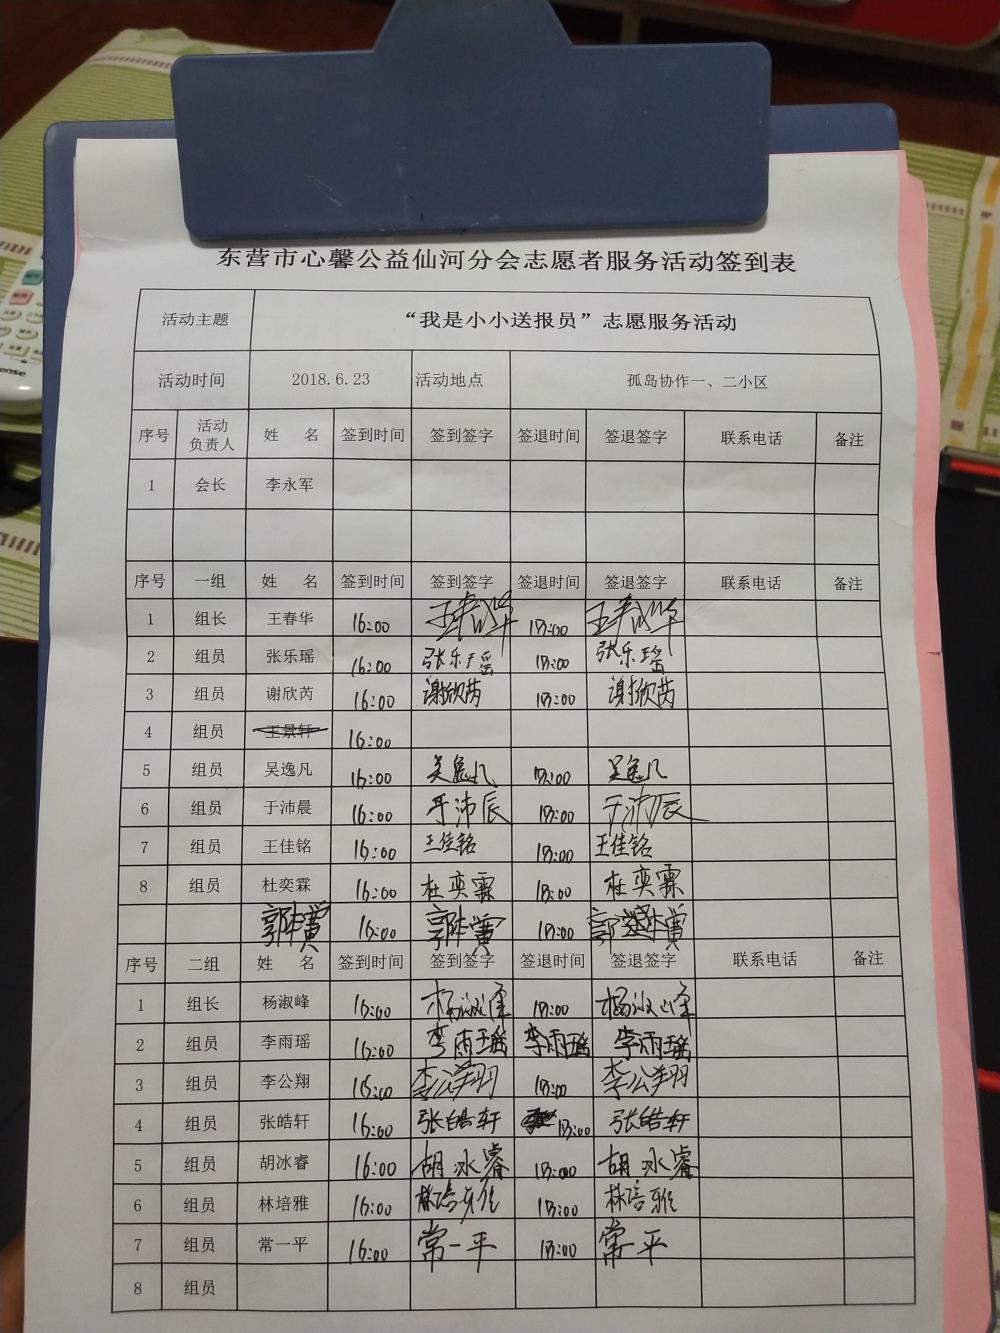 东营市心馨公益仙河分会志愿者服务活动签到表
活动主题 “我是小小送报员”志愿服务活动
活动时间 2018.6.23 活动地点 孤岛协作一、二小区
序号 活动负责人 姓 名 签到时间 签到签字 签退时间 签退签字 联系电话 备注
1 会长 李永军
序号 一组 姓 名 签到时间 签到签字 签退时间 签退签字 联系电话 备注
1 组长 王春华 16:00 王春华 17:00 王春华
2 组员 张乐瑶 16:00 张乐瑶 17:00 张乐瑶
3 组员 谢欣芮 16:00 谢欣芮 17:00 谢欣芮
4 组员 王景轩 16:00
5 组员 吴逸凡 16:00 吴逸凡 17:00 吴逸凡
6 组员 于沛晨 16:00 于沛辰 17:00 于沛辰
7 组员 王佳铭 16:00 王佳铭 17:00 王佳铭
8 组员 杜奕霖 16:00 杜奕霖 17:00 杜奕霖
16:00 17:00
序号 二组 姓 名 签到时间 签到签字 签退时间 签退签字 联系电话 备注
1 组长 杨淑峰 16:00 杨淑峰 17:00 杨淑峰
2 组员 李雨瑶 16:00 李雨瑶 李雨瑶 李雨瑶
3 组员 李公翔 16:00 李公翔 17:00 李公翔
4 组员 张皓轩 16:00 张皓轩 17:00 张皓轩
5 组员 胡冰睿 16:00 胡冰睿 17:00 胡冰睿
6 组员 林培雅 16:00 林培雅 17:00 林培雅
7 组员 常一平 16:00 常一平 17:00 常一平
8 组员